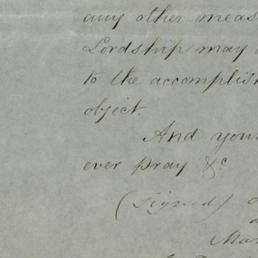 any other meas
Lordship may
to the accomplish
object.
And your
ever pray &c
(Signed)
Mar